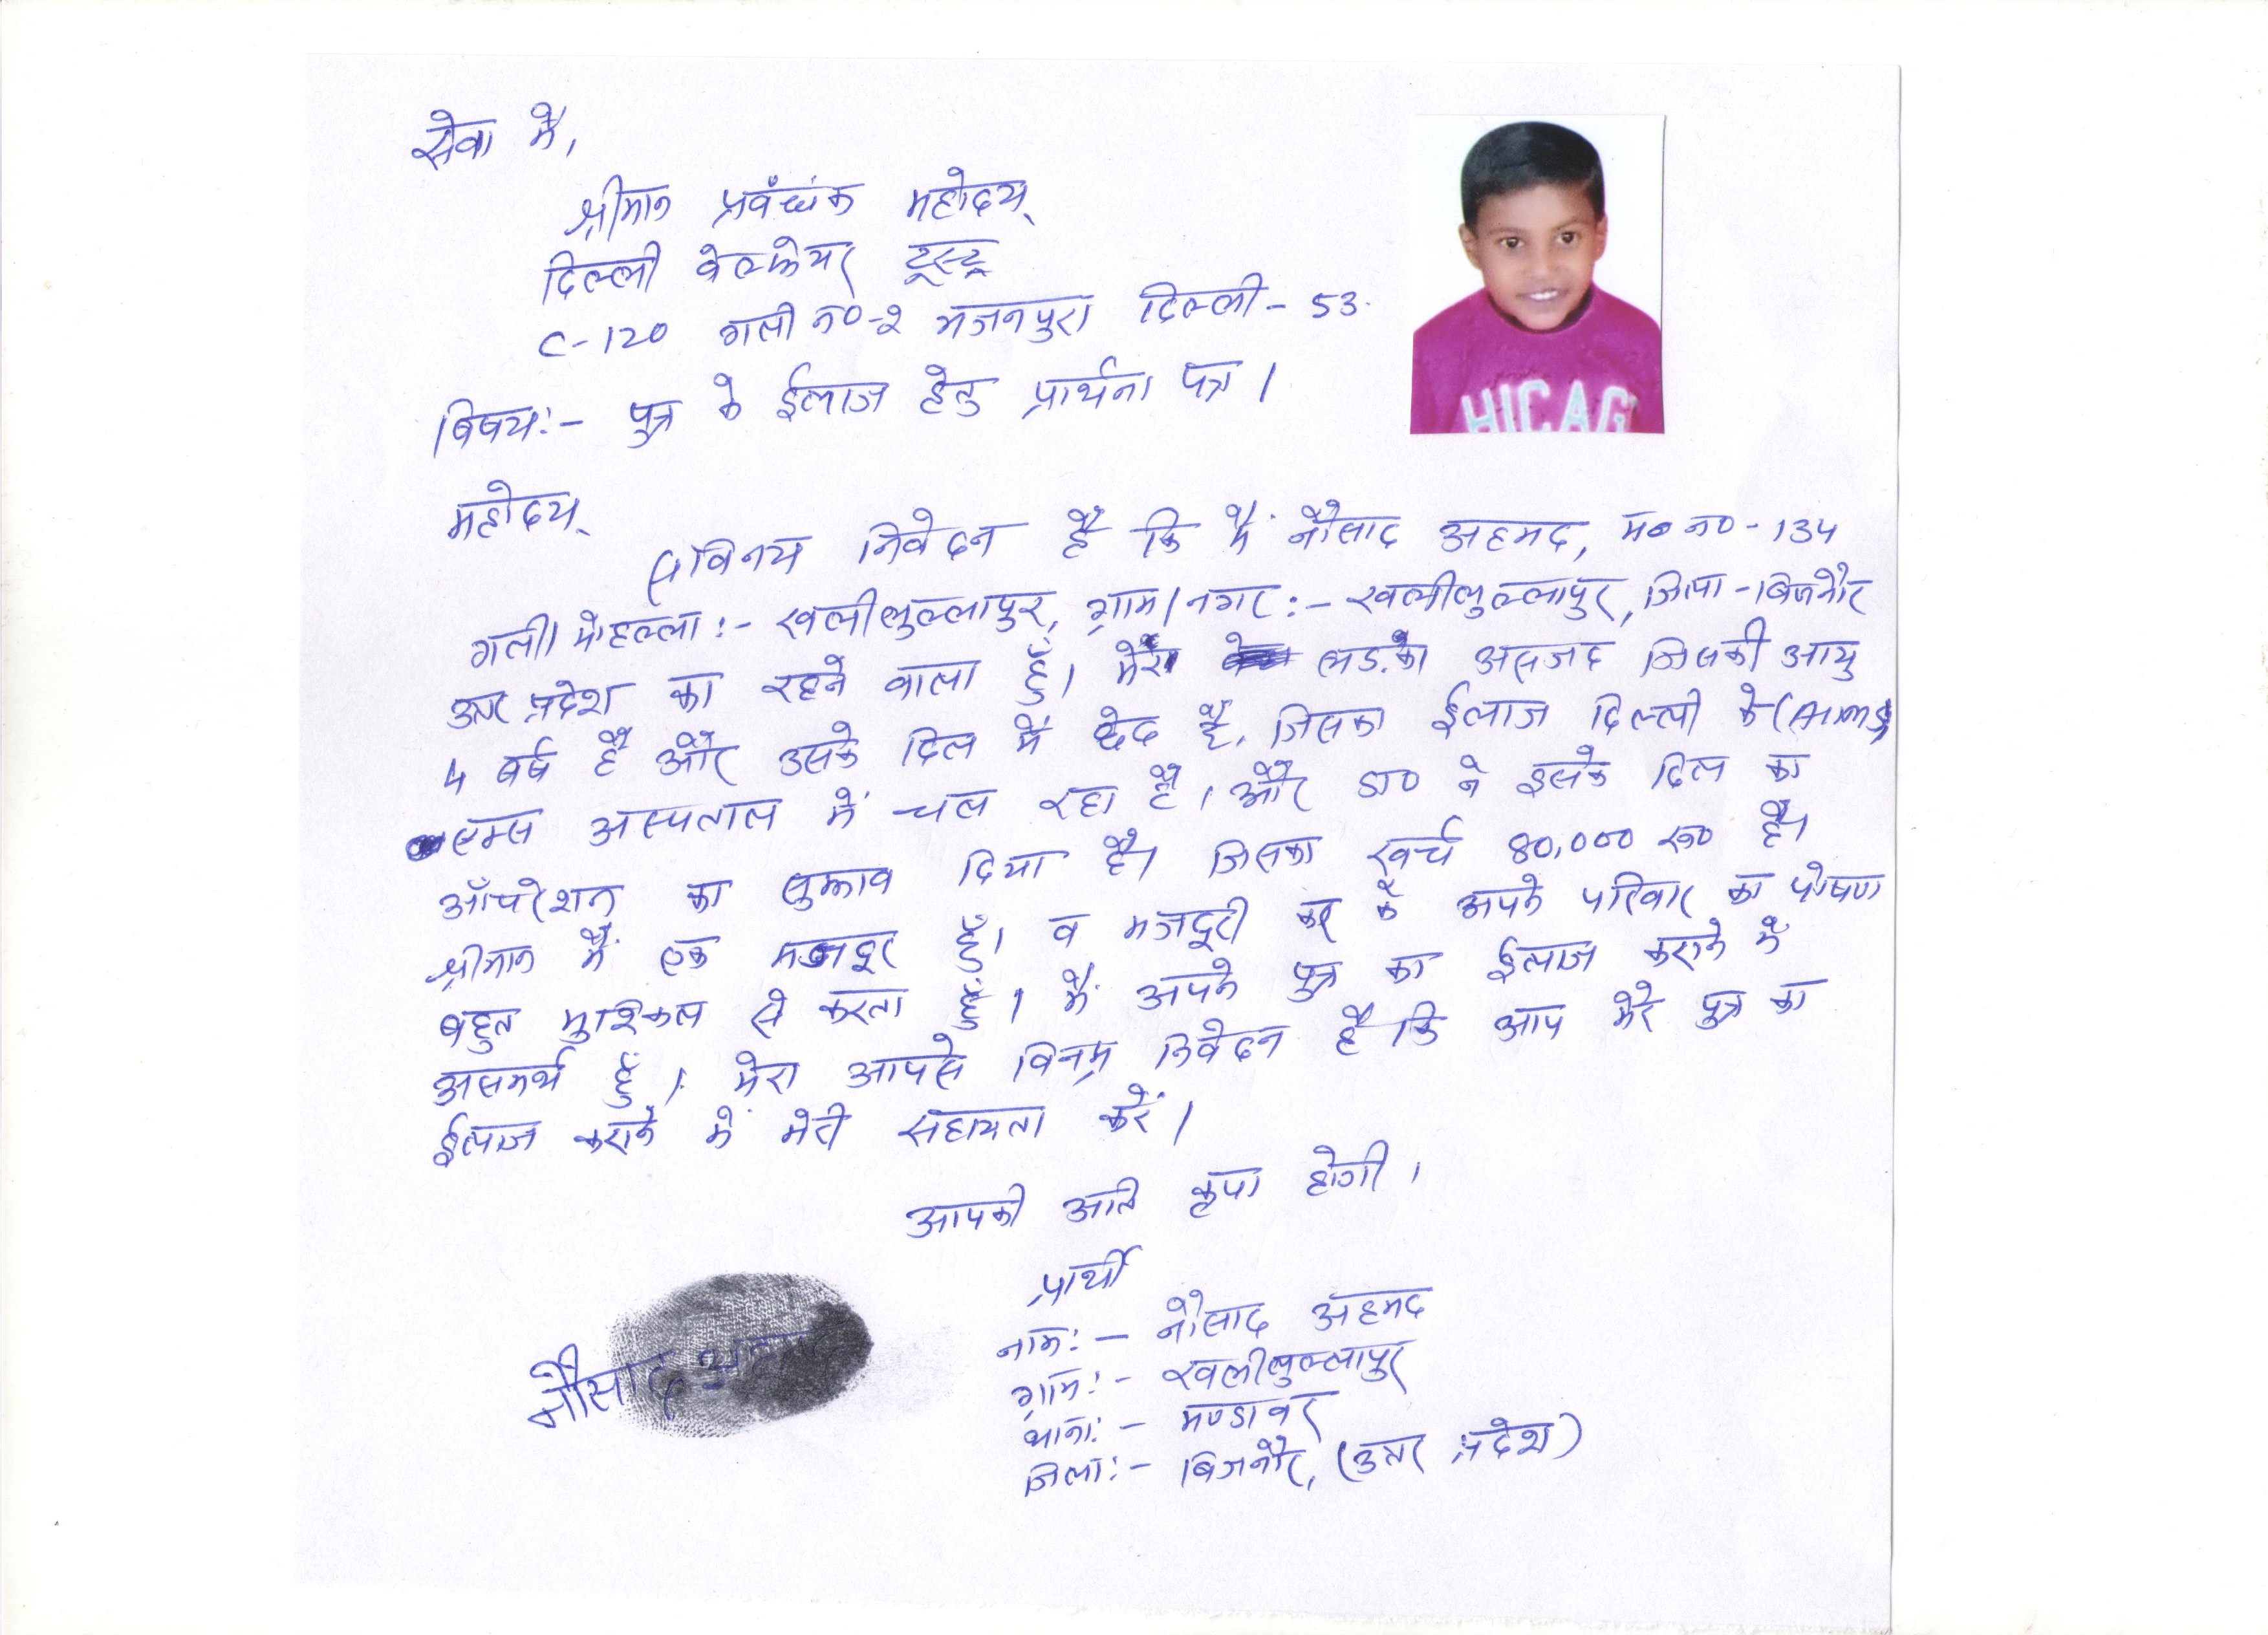 सेवा में,
श्रीमान प्रबंधक महोदय्
दिल्ली वेल्फेयर ट्रस्ट्र
C-120 गली न०-2 भजनपुरा दिल्ली- 53.
HICAG
विषय:- पुत्र के ईलाज हेतु प्रार्थना पत्र ।
महोदय्
सविनय निवेदन है कि मैं नौसाद अहमद, म० न० - 134
गली। मोहल्ला :- खलीलुल्लापुर, ग्राम / नगर :- खलीलुल्लापुर, जिला - बिजनौर
उत्तर प्रदेश का रहने वाला हूँ। मेरा लड़का असजद जिसकी आयु
4 वर्ष है और उसके दिल में छेद है, जिसका ईलाज दिल्ली के (Aiims)
एम्स अस्पताल में चल रहा है । और डा० ने इसके दिल का
ऑपरेशन का सुझाव दिया है। जिसका खर्च 80,000 रू० है।
श्रीमान मैं एक मजदूर हूँ। व मजदूरी कर के अपने परिवार का पोषण
बहुत मुश्किल से करता हूँ । मैं अपने पुत्र का ईलाज कराने में
असमर्थ हूँ । मेरा आपसे विनम्र निवेदन है कि आप मेरे पुत्र का
ईलाज कराने में मेरी सहायता करें ।
आपकी अति कृपा होगी ।
प्रार्थी
नाम:- नौसाद अहमद
ग्राम:- खलीलुल्लापुर
थाना:- मण्डावर
जिला:- बिजनौर, (उत्तर प्रदेश)
नौसाद अहमद